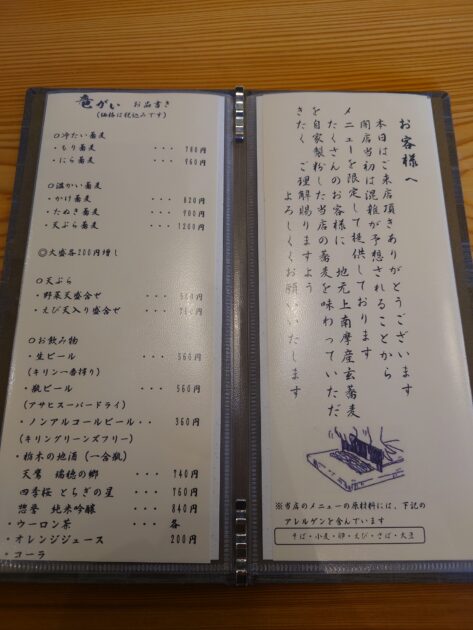 竜がい お品書き
(価格は税込みです)
○冷たい蕎麦
・もり蕎麦 ・・・ 760円
・にら蕎麦 ・・・ 960円
○温かい蕎麦
・かけ蕎麦 ・・・ 820円
・たぬき蕎麦 ・・・ 900円
・天ぷら蕎麦 ・・・ 1200円
◎大盛各200円増し
○天ぷら
・野菜天盛合せ ・・・
・えび天入り盛合せ ・・・
○お飲み物
・生ビール ・・・ 560円
(キリン一番搾り)
・瓶ビール ・・・ 560円
(アサヒスーパードライ)
・ノンアルコールビール・・ 360円
(キリングリーンズフリー)
・栃木の地酒(一合瓶)
天鷹 瑞穂の郷 ・・・ 740円
四季桜 とちぎの星 ・・・ 760円
惣誉 純米吟醸 ・・・ 840円
・ウーロン茶 ・・・ 各
・オレンジジュース 200円
・コーラ
お客様へ
本日はご来店頂きありがとうございます
開店当初は混雑が予想されることから
メニューを限定して提供しております
たくさんのお客様に 地元上南摩産玄蕎麦
を自家製粉した当店の蕎麦を味わっていただ
きたく ご理解賜りますよう
よろしくお願いいたします
※当店のメニューの原材料には、下記の
アレルゲンを含んでいます
そば・小麦・卵・えび・さば・大豆